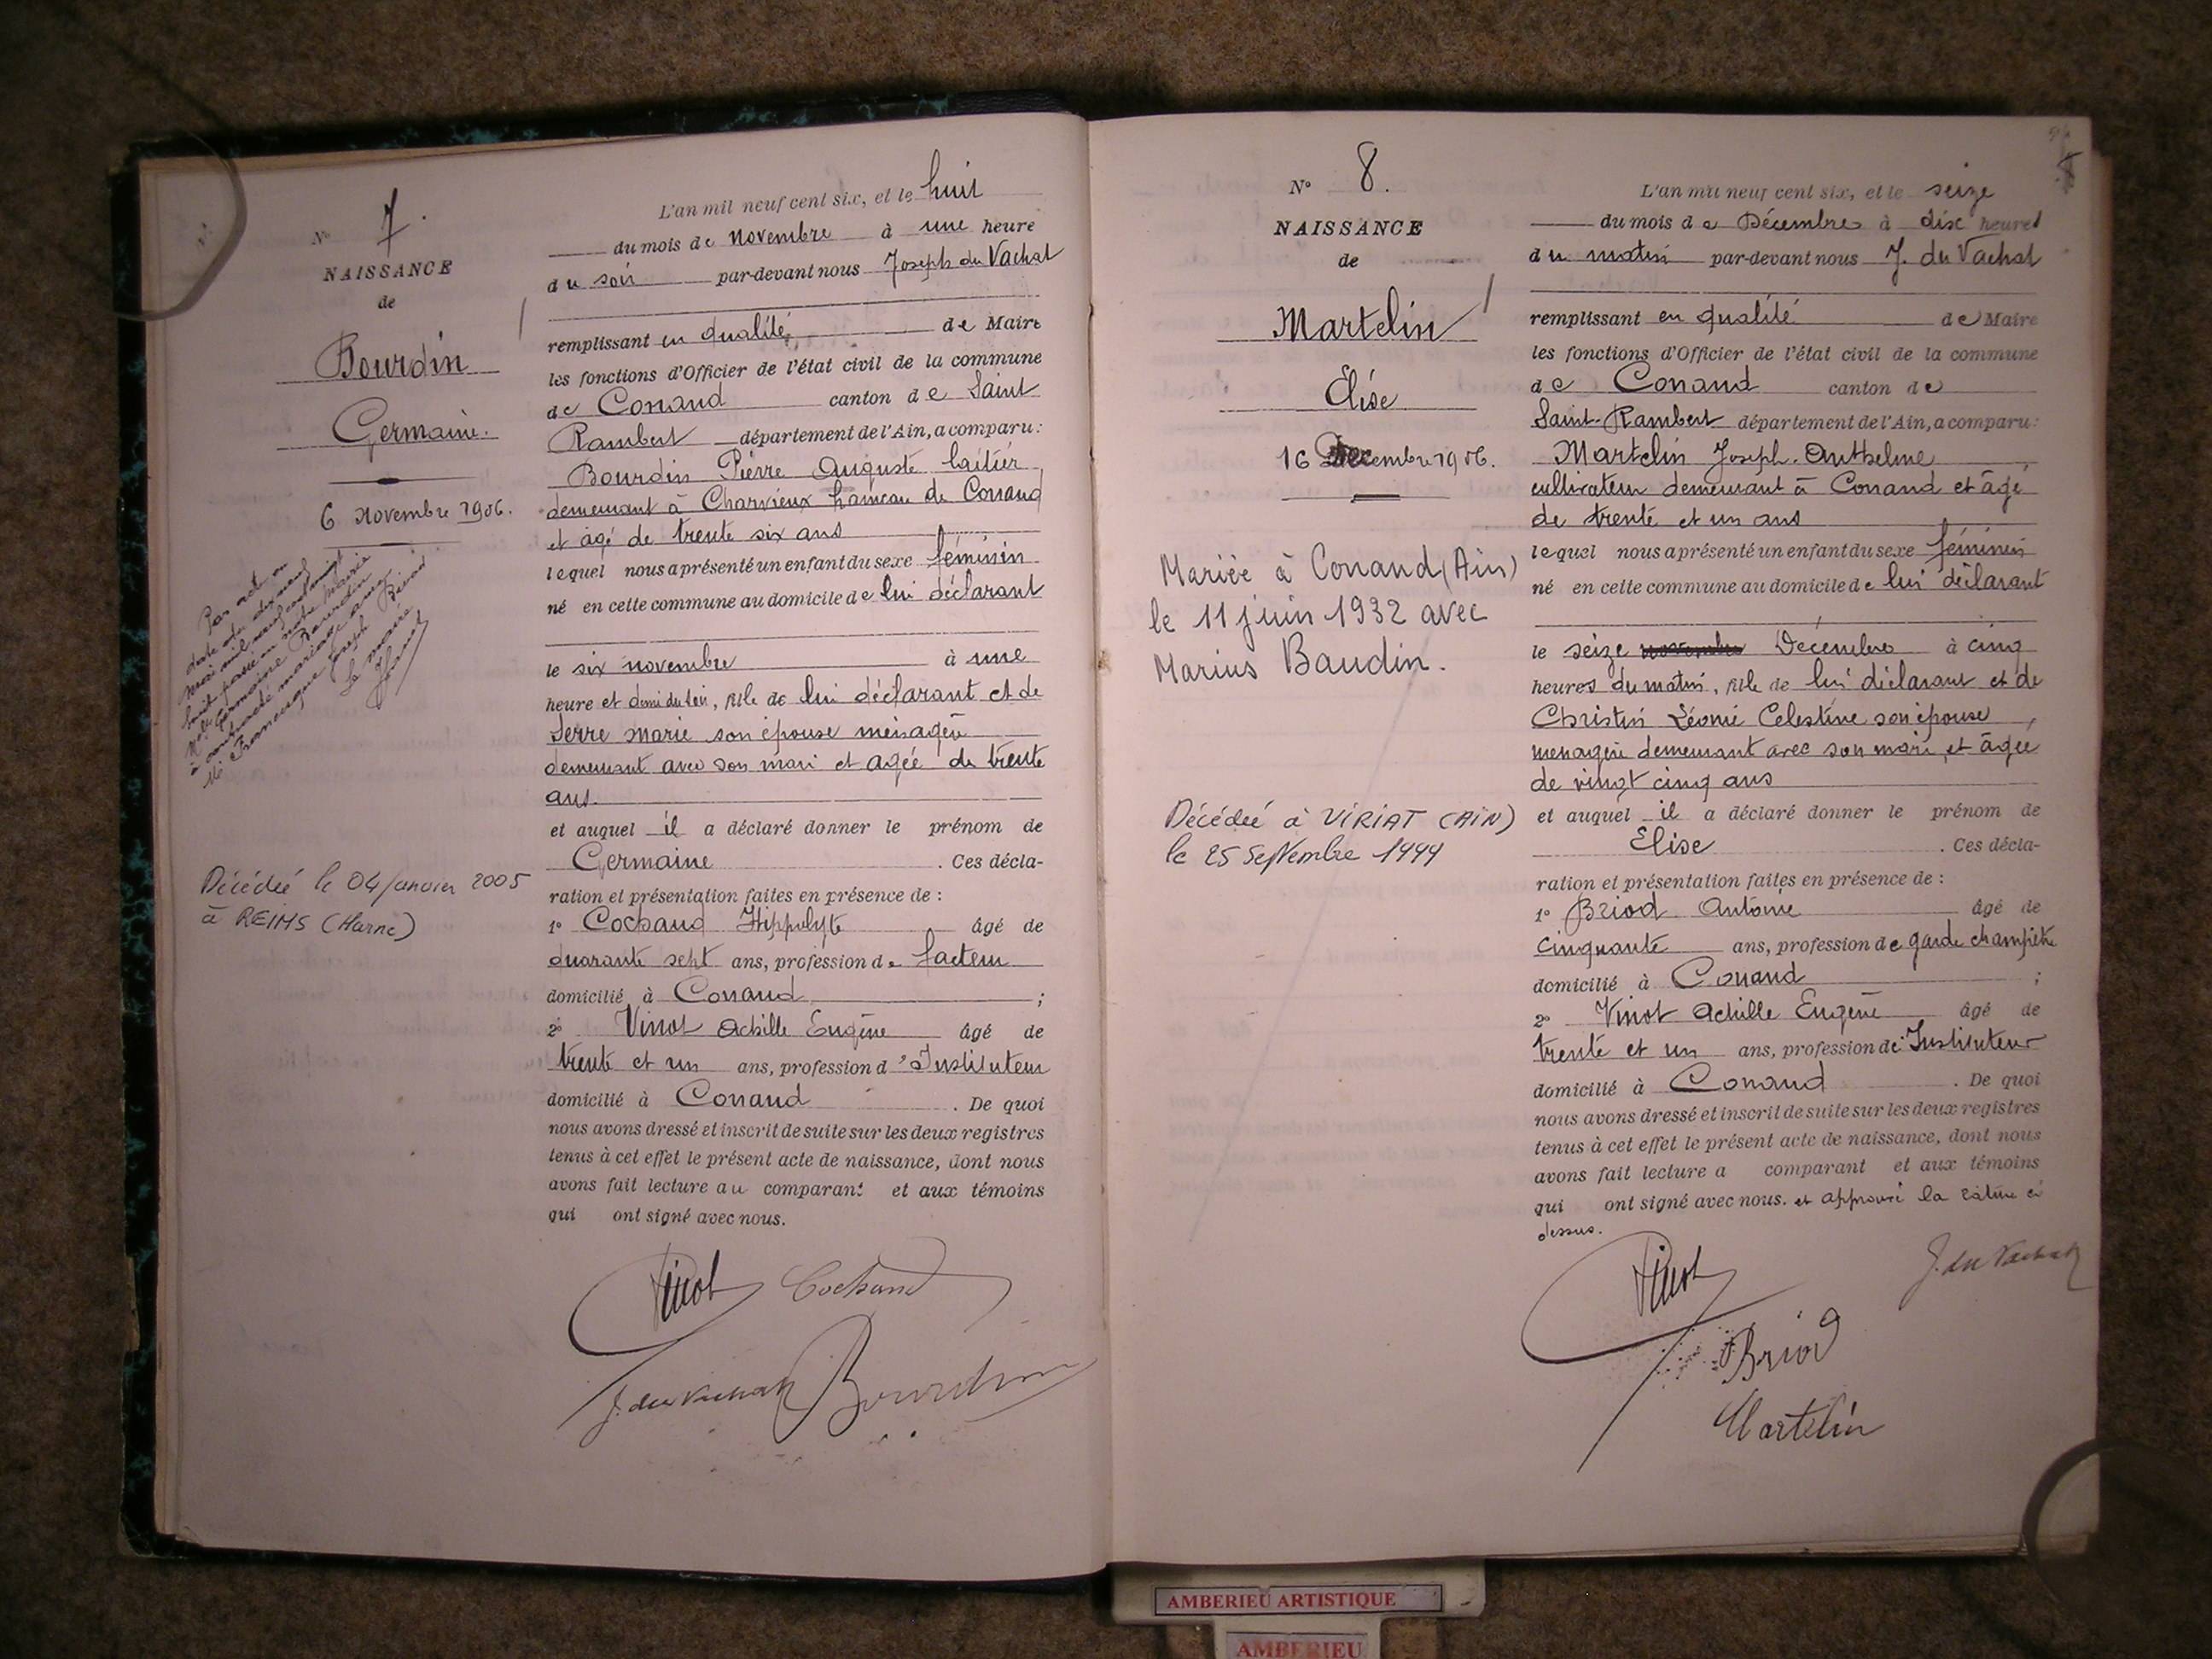 N° 7.
NAISSANCE
de
Bourdin
Germaine.
6 Novembre 1906.
Par acte en
date du dix neuf
mai mil neuf cent vingt
huit passé en notre Mairie
Melle Germaine Bourdin
a contracté mariage avec
Mr Francisque Joseph Briod
Le maire
Décédée le 04 Janvier 2005
à REIMS (Marne)
L'an mil neuf cent six, et le huit
du mois de Novembre à une heure
du soir par-devant nous Joseph du Vachat
remplissant en qualité de Maire
les fonctions d'Officier de l'état civil de la commune
de Conand canton de Saint
Rambert département de l'Ain, a comparu :
Bourdin Pierre Auguste laitier
demeurant à Charvieux hameau de Conand
et âgé de trente six ans
lequel nous a présenté un enfant du sexe féminin
né en cette commune au domicile de lui déclarant
le six novembre à une
heure et demi du soir, fille de lui déclarant et de
Serre Marie son épouse ménagère
demeurant avec son mari et agée de trente
ans.
et auquel il a déclaré donner le prénom de
Germaine. Ces décla-
ration et présentation faites en présence de :
1° Cochaud Hippolyte âgé de
quarante sept ans, profession de facteur
domicilié à Conand ;
2° Vinot Achille Eugène âgé de
trente et un ans, profession d'Instituteur
domicilié à Conand. De quoi
nous avons dressé et inscrit de suite sur les deux registres
tenus à cet effet le présent acte de naissance, dont nous
avons fait lecture au comparant et aux témoins
qui ont signé avec nous.
Vinot Cochaud
J. du Vachat Bourdin
N° 8.
NAISSANCE
de
Martelin
Elise
16 Decembre 1906.
Mariée à Conand (Ain)
le 11 juin 1932 avec
Marius Baudin.
Décédée à VIRIAT (AIN)
le 25 Septembre 1999
L'an mil neuf cent six, et le seize
du mois de Décembre à dix heures
du matin par-devant nous J. du Vachat
remplissant en qualité de Maire
les fonctions d'Officier de l'état civil de la commune
de Conand canton de
Saint-Rambert département de l'Ain, a comparu :
Martelin Joseph-Anthelme
cultivateur demeurant à Conand et âgé
de trente et un ans
lequel nous a présenté un enfant du sexe féminin
né en cette commune au domicile de lui déclarant
le seize novembre Décembre à cinq
heures du matin, fille de lui déclarant et de
Christin Léonie Celestine son épouse,
menagère demeurant avec son mari, et âgée
de vingt cinq ans
et auquel il a déclaré donner le prénom de
Elise. Ces décla-
ration et présentation faites en présence de :
1° Briod Antoine âgé de
cinquante ans, profession de garde champêtre
domicilié à Conand ;
2° Vinot Achille Eugène âgé de
trente et un ans, profession de Instituteur
domicilié à Conand. De quoi
nous avons dressé et inscrit de suite sur les deux registres
tenus à cet effet le présent acte de naissance, dont nous
avons fait lecture a comparant et aux témoins
qui ont signé avec nous. et approuvé la rature ci
dessus.
Vinot J. du Vachat
Briod
Martelin
AMBERIEU ARTISTIQUE
AMBERIEU